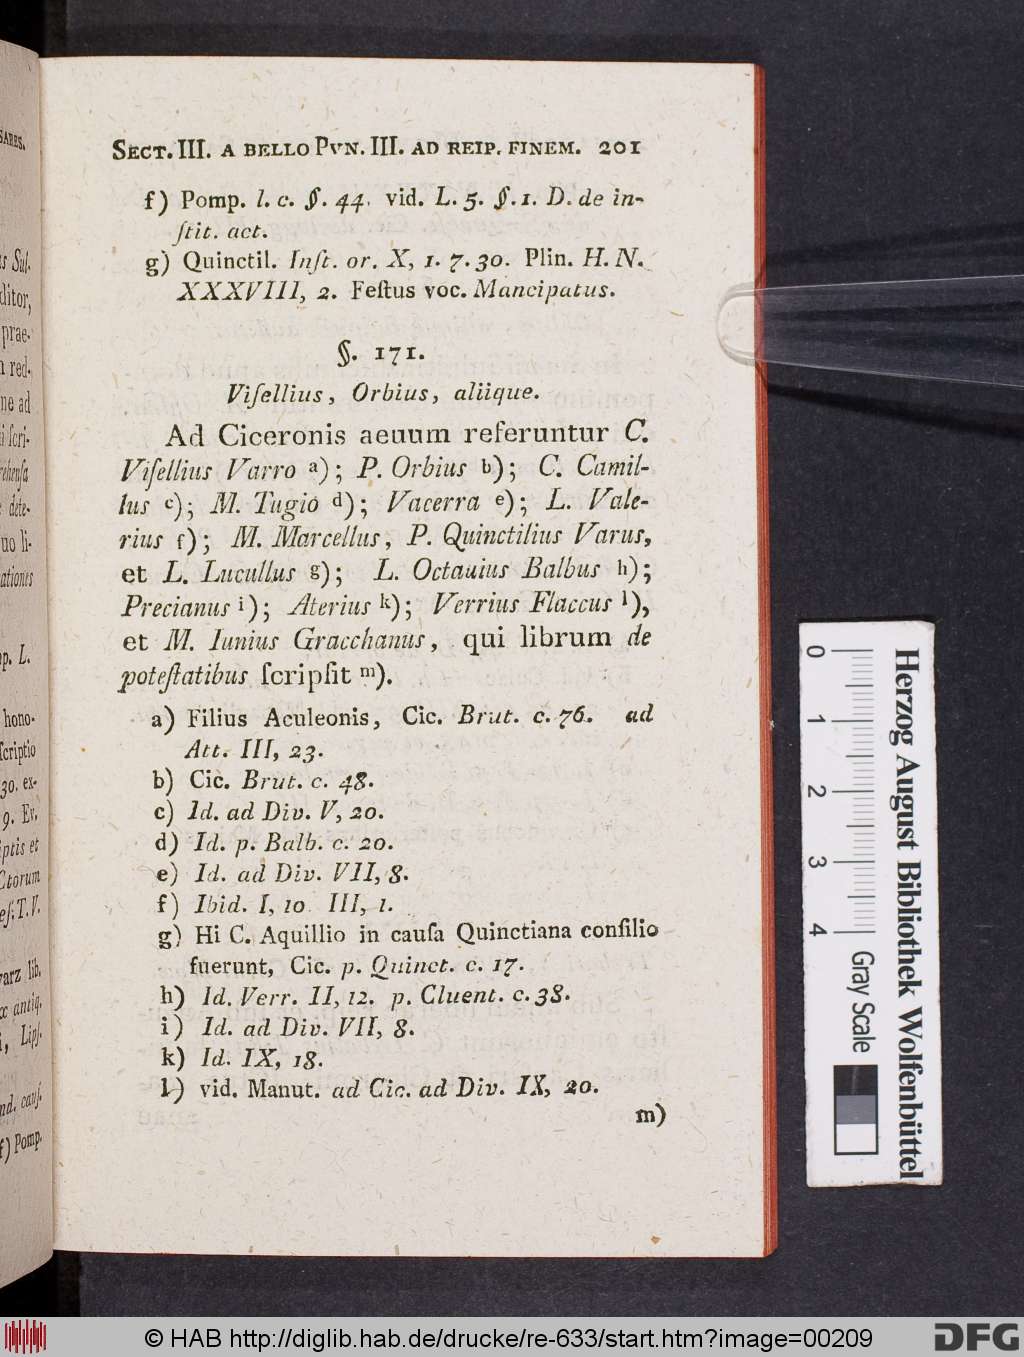 SECT. III. A BELLO PVN. III. AD REIP. FINEM. 201
f) Pomp. l. c. §. 44. vid. L. 5. §. 1. D. de in-
ſtit. act.
g) Quinctil. Inſt. or. X, 1. 7. 30. Plin. H. N.
XXXVIII, 2. Feſtus voc. Mancipatus.
§. 171.
Viſellius, Orbius, aliique.
Ad Ciceronis aeuum referuntur C.
Viſellius Varro a); P. Orbius b); C. Camil-
lus c); M. Tugio d); Vacerra e); L. Vale-
rius f); M. Marcellus, P. Quinctilius Varus,
et L. Lucullus g); L. Octauius Balbus h);
Precianus i); Aterius k); Verrius Flaccus l),
et M. Iunius Gracchanus, qui librum de
poteſtatibus ſcripſit m).
a) Filius Aculeonis, Cic. Brut. c. 76. ad
Att. III, 23.
b) Cic. Brut. c. 48.
c) Id. ad Div. V, 20.
d) Id. p. Balb. c. 20.
e) Id. ad Div. VII, 8.
f) Ibid. I, 10. III, 1.
g) Hi C. Aquillio in cauſa Quinctiana conſilio
fuerunt, Cic. p. Quinct. c. 17.
h) Id. Verr. II, 12. p. Cluent. c. 38.
i) Id. ad Div. VII, 8.
k) Id. IX, 18.
l) vid. Manut. ad Cic. ad Div. IX, 20.
m)
0 1 2 3 4 Gray Scale
Herzog August Bibliothek Wolfenbüttel
© HAB http://diglib.hab.de/drucke/re-633/start.htm?image=00209
DFG